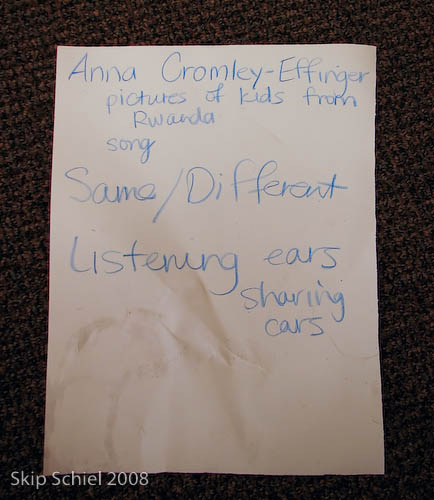 Anna Cromley-Effinger
pictures of kids from
Rwanda
song
Same/Different
Listening ears
sharing
ears
Skip Schiel 2008